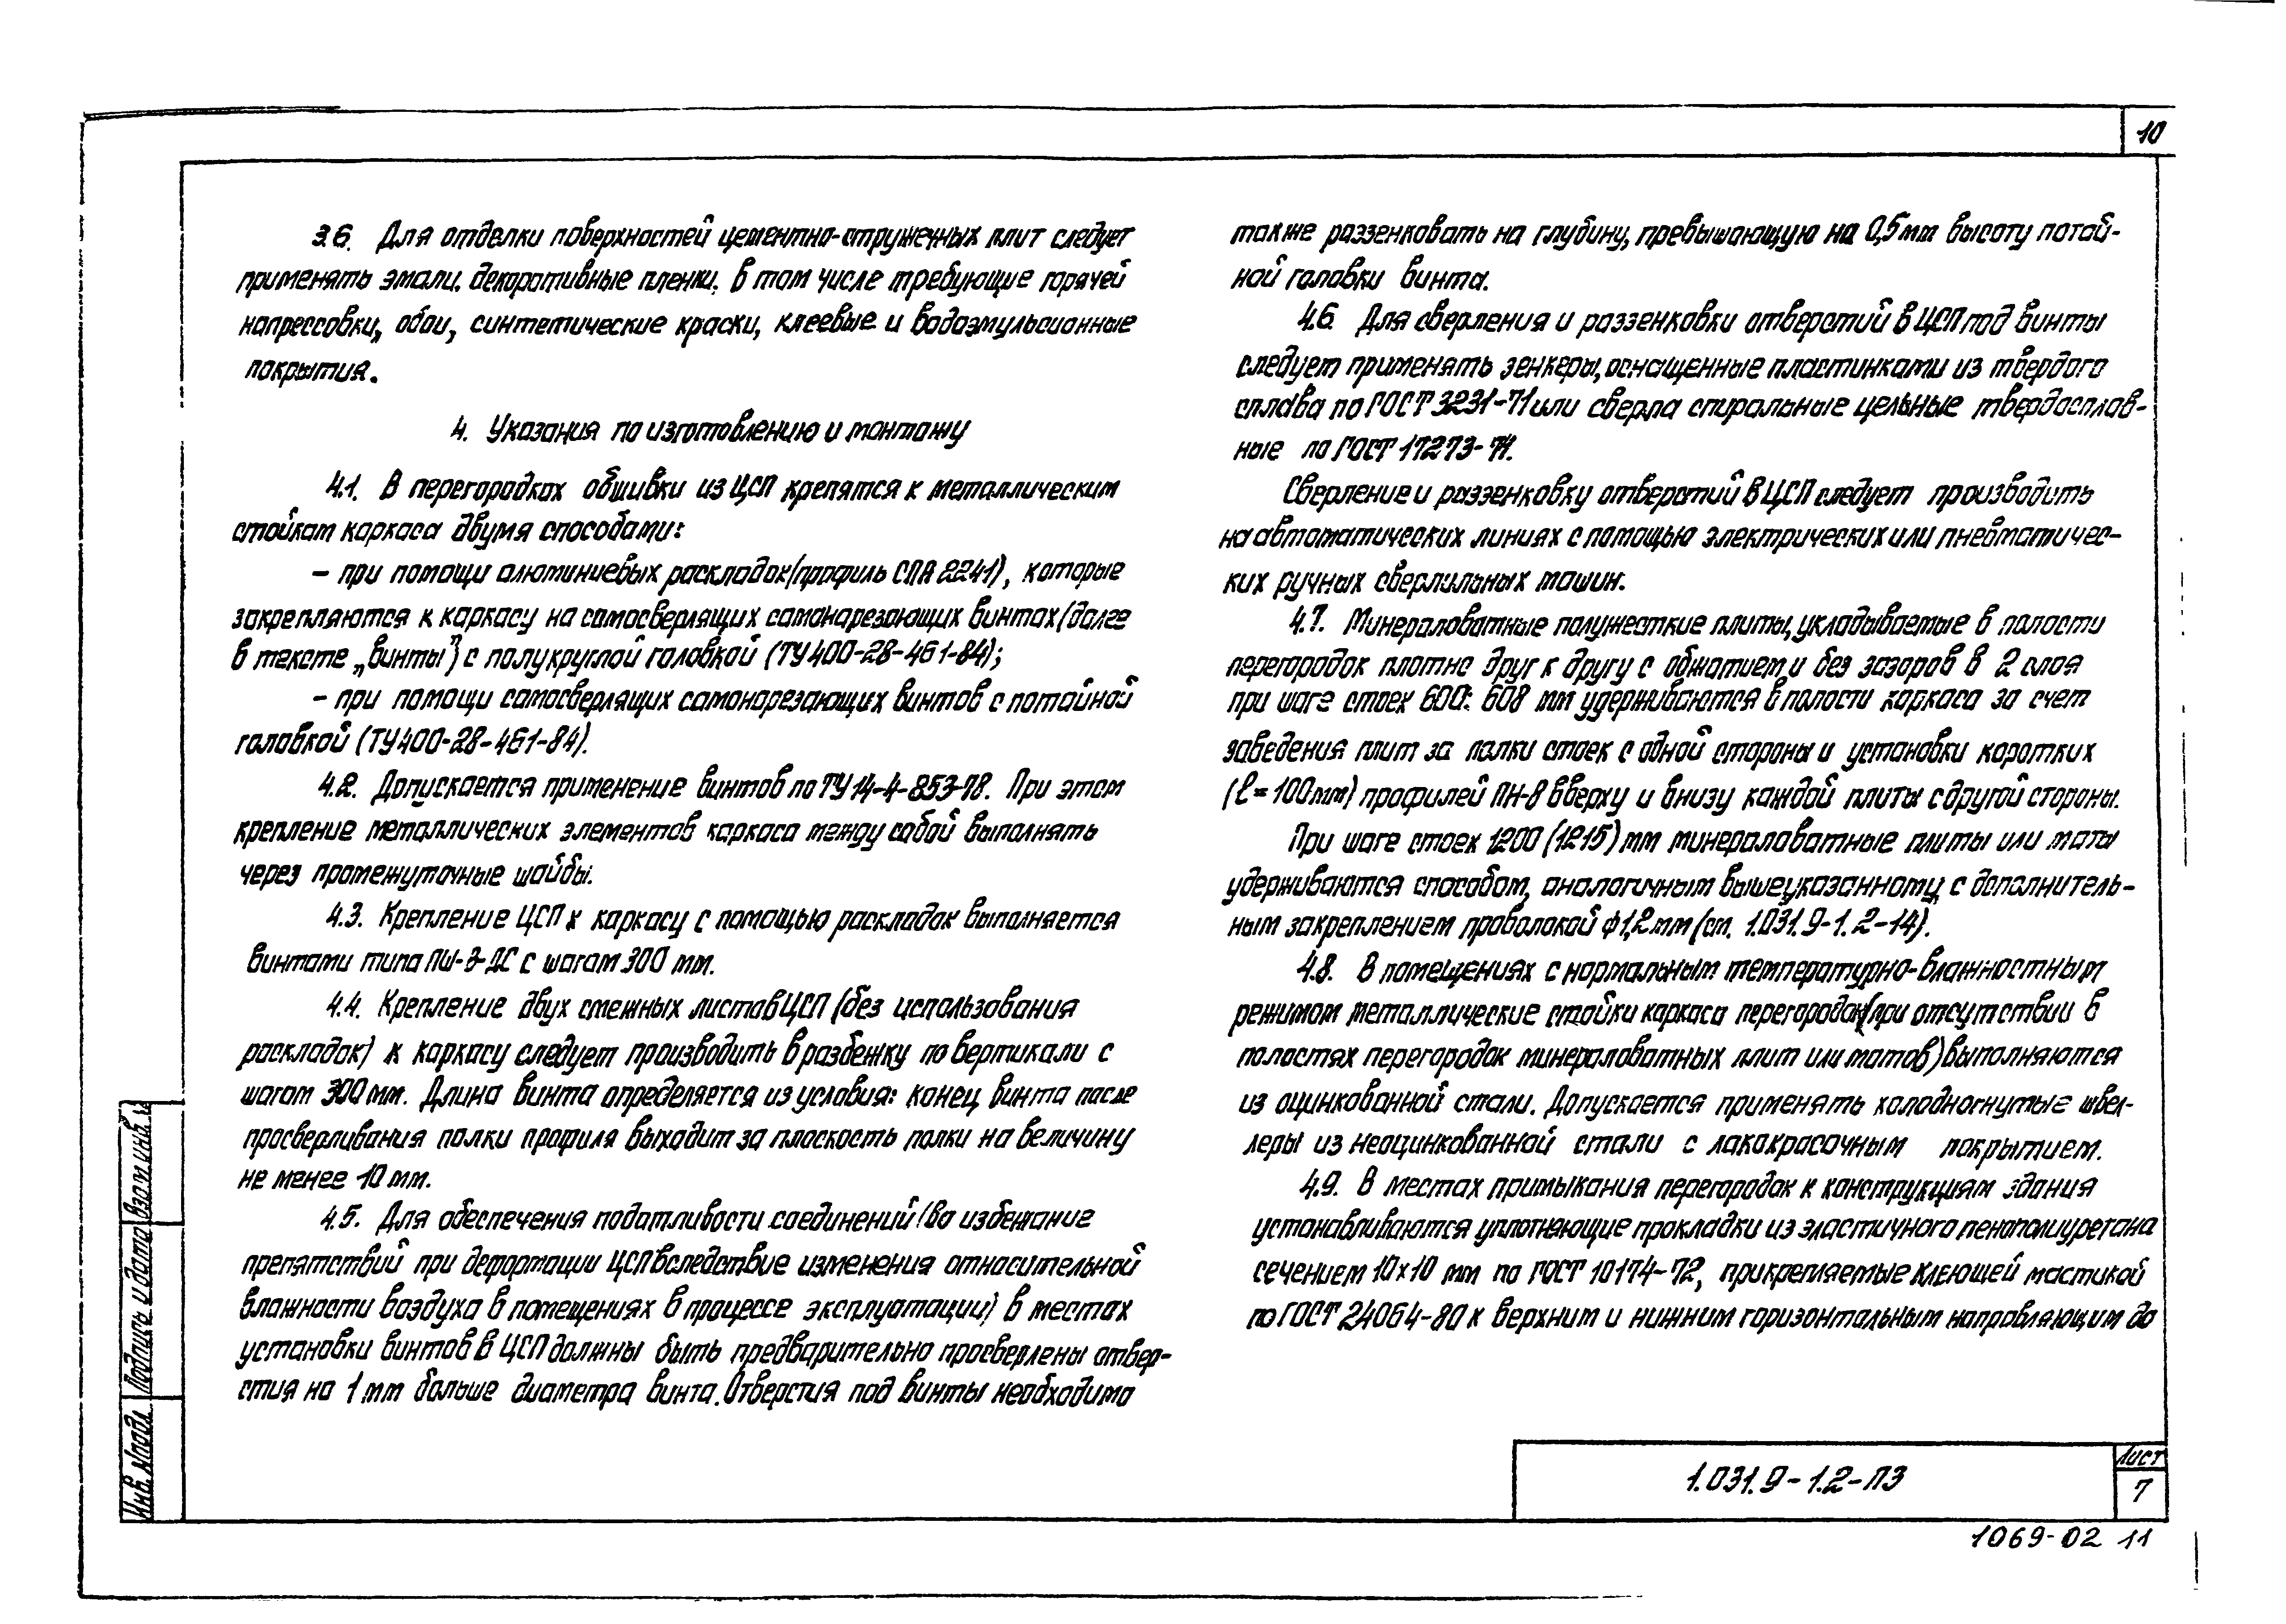 10
3.6. Для отделки поверхностей цементно-стружечных плит следует
применять эмали, декоративные пленки, в том числе требующие горячей
напрессовки, обои, синтетические краски, клеевые и водоэмульсионные
покрытия.
4. Указания по изготовлению и монтажу
4.1. В перегородках обшивки из ЦСП крепятся к металлическим
стойкам каркаса двумя способами:
– при помощи алюминиевых раскладок (профиль СПА 2241), которые
закрепляются к каркасу на самосверлящих самонарезающих винтах (далее
в тексте „винты") с полукруглой головкой (ТУ 400-28-461-84);
– при помощи самосверлящих самонарезающих винтов с потайной
головкой (ТУ 400-28-461-84).
4.2. Допускается применение винтов по ТУ 14-4-853-78. При этом
крепление металлических элементов каркаса между собой выполнять
через промежуточные шайбы.
4.3. Крепление ЦСП к каркасу с помощью раскладок выполняется
винтами типа ПШ-3-ДС с шагом 300 мм.
4.4. Крепление двух смежных листов ЦСП (без использования
раскладок) к каркасу следует производить в разбежку по вертикали с
шагом 300 мм. Длина винта определяется из условия: конец винта после
просверливания полки профиля выходит за плоскость полки на величину
не менее 10 мм.
4.5. Для обеспечения податливости соединений (во избежание
препятствий при деформации ЦСП вследствие изменения относительной
влажности воздуха в помещениях в процессе эксплуатации) в местах
установки винтов в ЦСП должны быть предварительно просверлены отвер-
стия на 1 мм больше диаметра винта. Отверстия под винты необходимо
также раззенковать на глубину, превышающую на 0,5 мм высоту потай-
ной головки винта.
4.6. Для сверления и раззенковки отверстий в ЦСП под винты
следует применять зенкеры, оснащенные пластинками из твердого
сплава по ГОСТ 3231-71 или сверла спиральные цельные твердосплав-
ные по ГОСТ 17273-71.
Сверление и раззенковку отверстий в ЦСП следует производить
на автоматических линиях с помощью электрических или пневматичес-
ких ручных сверлильных машин.
4.7. Минераловатные полужесткие плиты, укладываемые в полости
перегородок плотно друг к другу с обжатием и без зазоров в 2 слоя
при шаге стоек 600÷608 мм удерживаются в полости каркаса за счет
заведения плит за полки стоек с одной стороны и установки коротких
(ℓ=100мм) профилей ПН-8 вверху и внизу каждой плиты с другой стороны.
При шаге стоек 1200 (1215) мм минераловатные плиты или маты
удерживаются способом, аналогичным вышеуказанному, с дополнитель-
ным закреплением проволокой ф1,2 мм (см. 1.031.9-1.2-14).
4.8. В помещениях с нормальным температурно-влажностным
режимом металлические стойки каркаса перегородок (при отсутствии в
полостях перегородок минераловатных плит или матов) выполняются
из оцинкованной стали. Допускается применять холодногнутые швел-
леры из неоцинкованной стали с лакокрасочным покрытием.
4.9. В местах примыкания перегородок к конструкциям здания
устанавливаются уплотняющие прокладки из эластичного пенополиуретана
сечением 10х10 мм по ГОСТ 10174-72, прикрепляемые клеющей мастикой
по ГОСТ 24064-80 к верхним и нижним горизонтальным направляющим до
Инв. № подл. Подпись и дата Взам. инв. №
1.031.9-1.2-ПЗ
Лист
7
1069-02 11